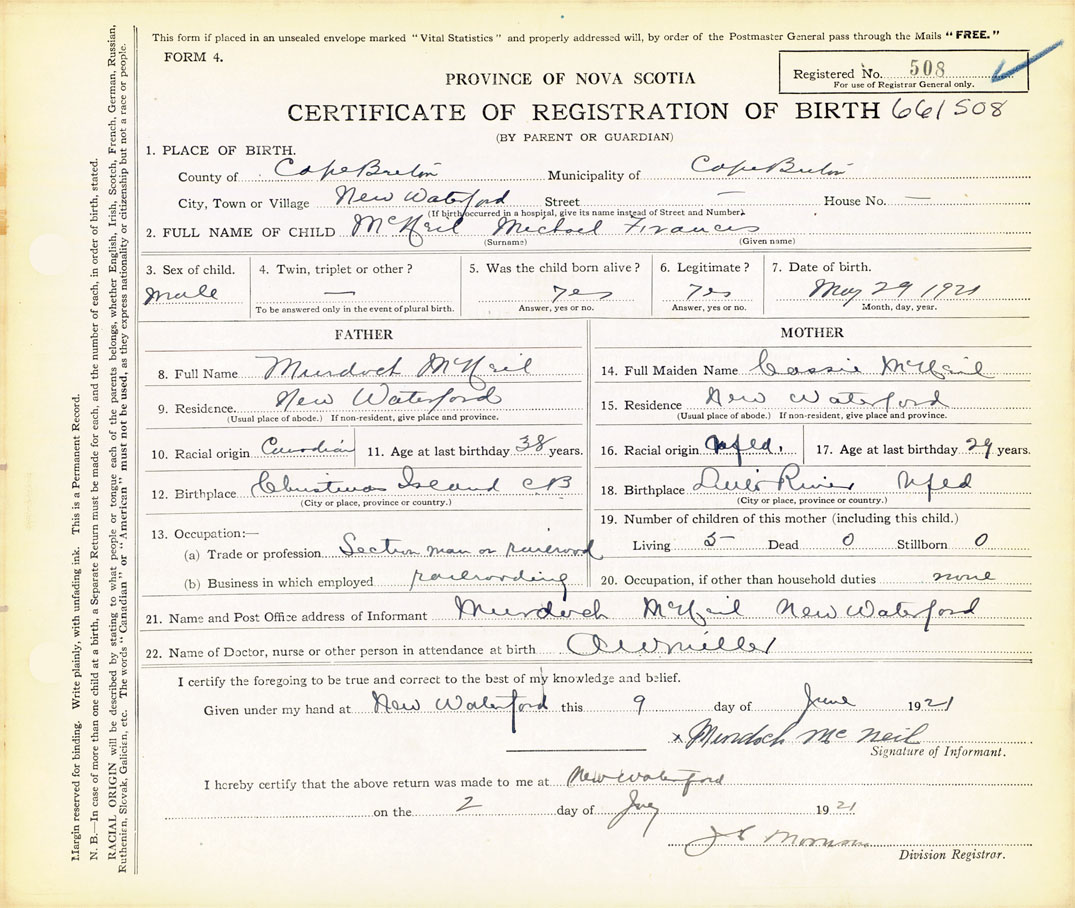 This form if placed in an unsealed envelope marked "Vital Statistics" and properly addressed will, by order of the Postmaster General pass through the Mails "FREE."
FORM 4.
Registered No. 508
For use of Registrar General only.
PROVINCE OF NOVA SCOTIA
CERTIFICATE OF REGISTRATION OF BIRTH 661508
(BY PARENT OR GUARDIAN)
1. PLACE OF BIRTH.
County of Cape Breton Municipality of Cape Breton
City, Town or Village New Waterford Street — House No. —
(If birth occurred in a hospital, give its name instead of Street and Number).
2. FULL NAME OF CHILD McNeil Michael Frances
(Surname) (Given name)
3. Sex of child. 4. Twin, triplet or other? 5. Was the child born alive? 6. Legitimate? 7. Date of birth.
male — yes yes May 29 1921
To be answered only in the event of plural birth. Answer, yes or no. Answer, yes or no. Month, day, year.
FATHER
8. Full Name Murdoch McNeil
9. Residence. New Waterford
(Usual place of abode.) If non-resident, give place and province.
10. Racial origin Canadian 11. Age at last birthday 38 years.
12. Birthplace Christmas Island CB
(City or place, province or country.)
13. Occupation:—
(a) Trade or profession Section man on railroad
(b) Business in which employed railroading
MOTHER
14. Full Maiden Name Cassie McNeil
15. Residence New Waterford
(Usual place of abode.) If non-resident, give place and province.
16. Racial origin Nfld. 17. Age at last birthday 29 years.
18. Birthplace River Nfld
(City or place, province or country.)
19. Number of children of this mother (including this child.)
Living 5 Dead 0 Stillborn 0
20. Occupation, if other than household duties none
21. Name and Post Office address of Informant Murdoch McNeil New Waterford
22. Name of Doctor, nurse or other person in attendance at birth Miller
I certify the foregoing to be true and correct to the best of my knowledge and belief.
Given under my hand at New Waterford this 9 day of June 1921
x Murdoch McNeil
Signature of Informant.
I hereby certify that the above return was made to me at New Waterford
on the 2 day of 1921
J S Morrison
Division Registrar.
Margin reserved for binding. Write plainly, with unfading ink. This is a Permanent Record.
N. B.—In case of more than one child at a birth, a Separate Return must be made for each, and the number of each, in order of birth, stated.
RACIAL ORIGIN will be described by stating to what people or tongue each of the parents belongs, whether English, Irish, Scotch, French, German, Russian,
Ruthenian, Slovak, Galician, etc. The words "Canadian" or "American" must not be used, as they express nationality or citizenship but not a race or people.